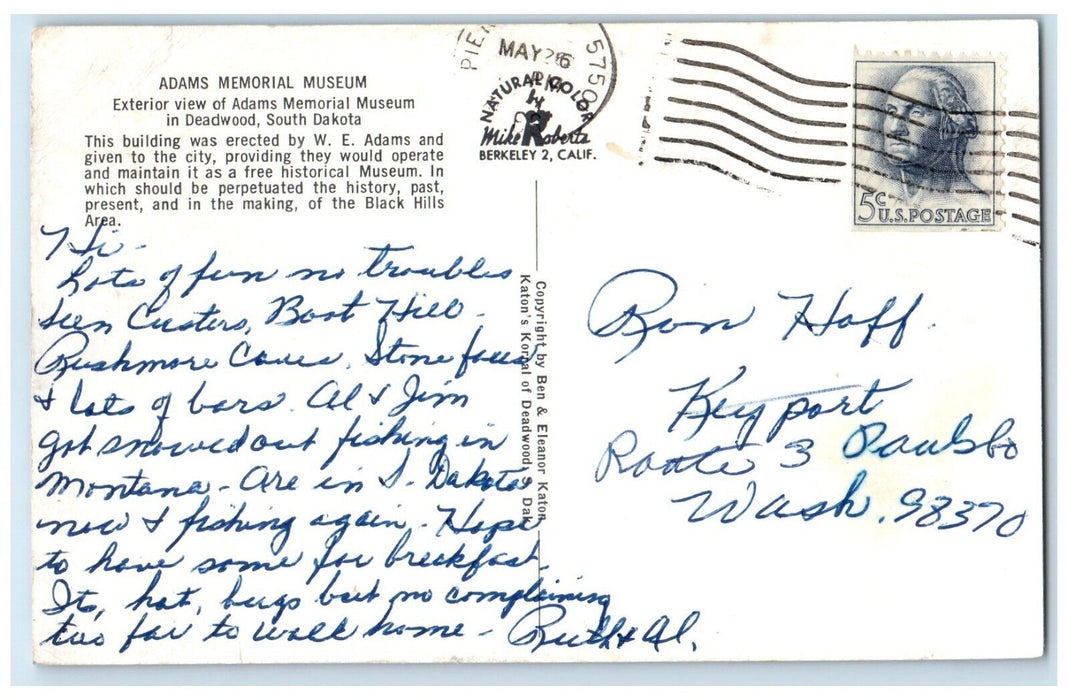 ADAMS MEMORIAL MUSEUM
Exterior view of Adams Memorial Museum
in Deadwood, South Dakota
This building was erected by W. E. Adams and
given to the city, providing they would operate
and maintain it as a free historical Museum. In
which should be perpetuated the history, past,
present, and in the making, of the Black Hills
Area.
Hi -
Lots of fun no troubles
seen Custers, Boot Hill -
Rushmore Caves, Stone faces
& lots of bars. Al & Jim
got snowed out fishing in
Montana - Are in S. Dakota
now & fishing again - Hope
to have some for breakfast.
Its, hot, bugs but no complaining
too far to walk home - Ruth & Al.
Copyright by Ben & Eleanor Katon
Katon's Korral of Deadwood, S. Dak.
PIE
MAY 26
PM
5750
NATURAL COLOR
by
Mike Roberts
BERKELEY 2, CALIF.
5c U.S. POSTAGE
Ron Hoff.
Keyport
Route 3 Poulsbo
Wash. 98370